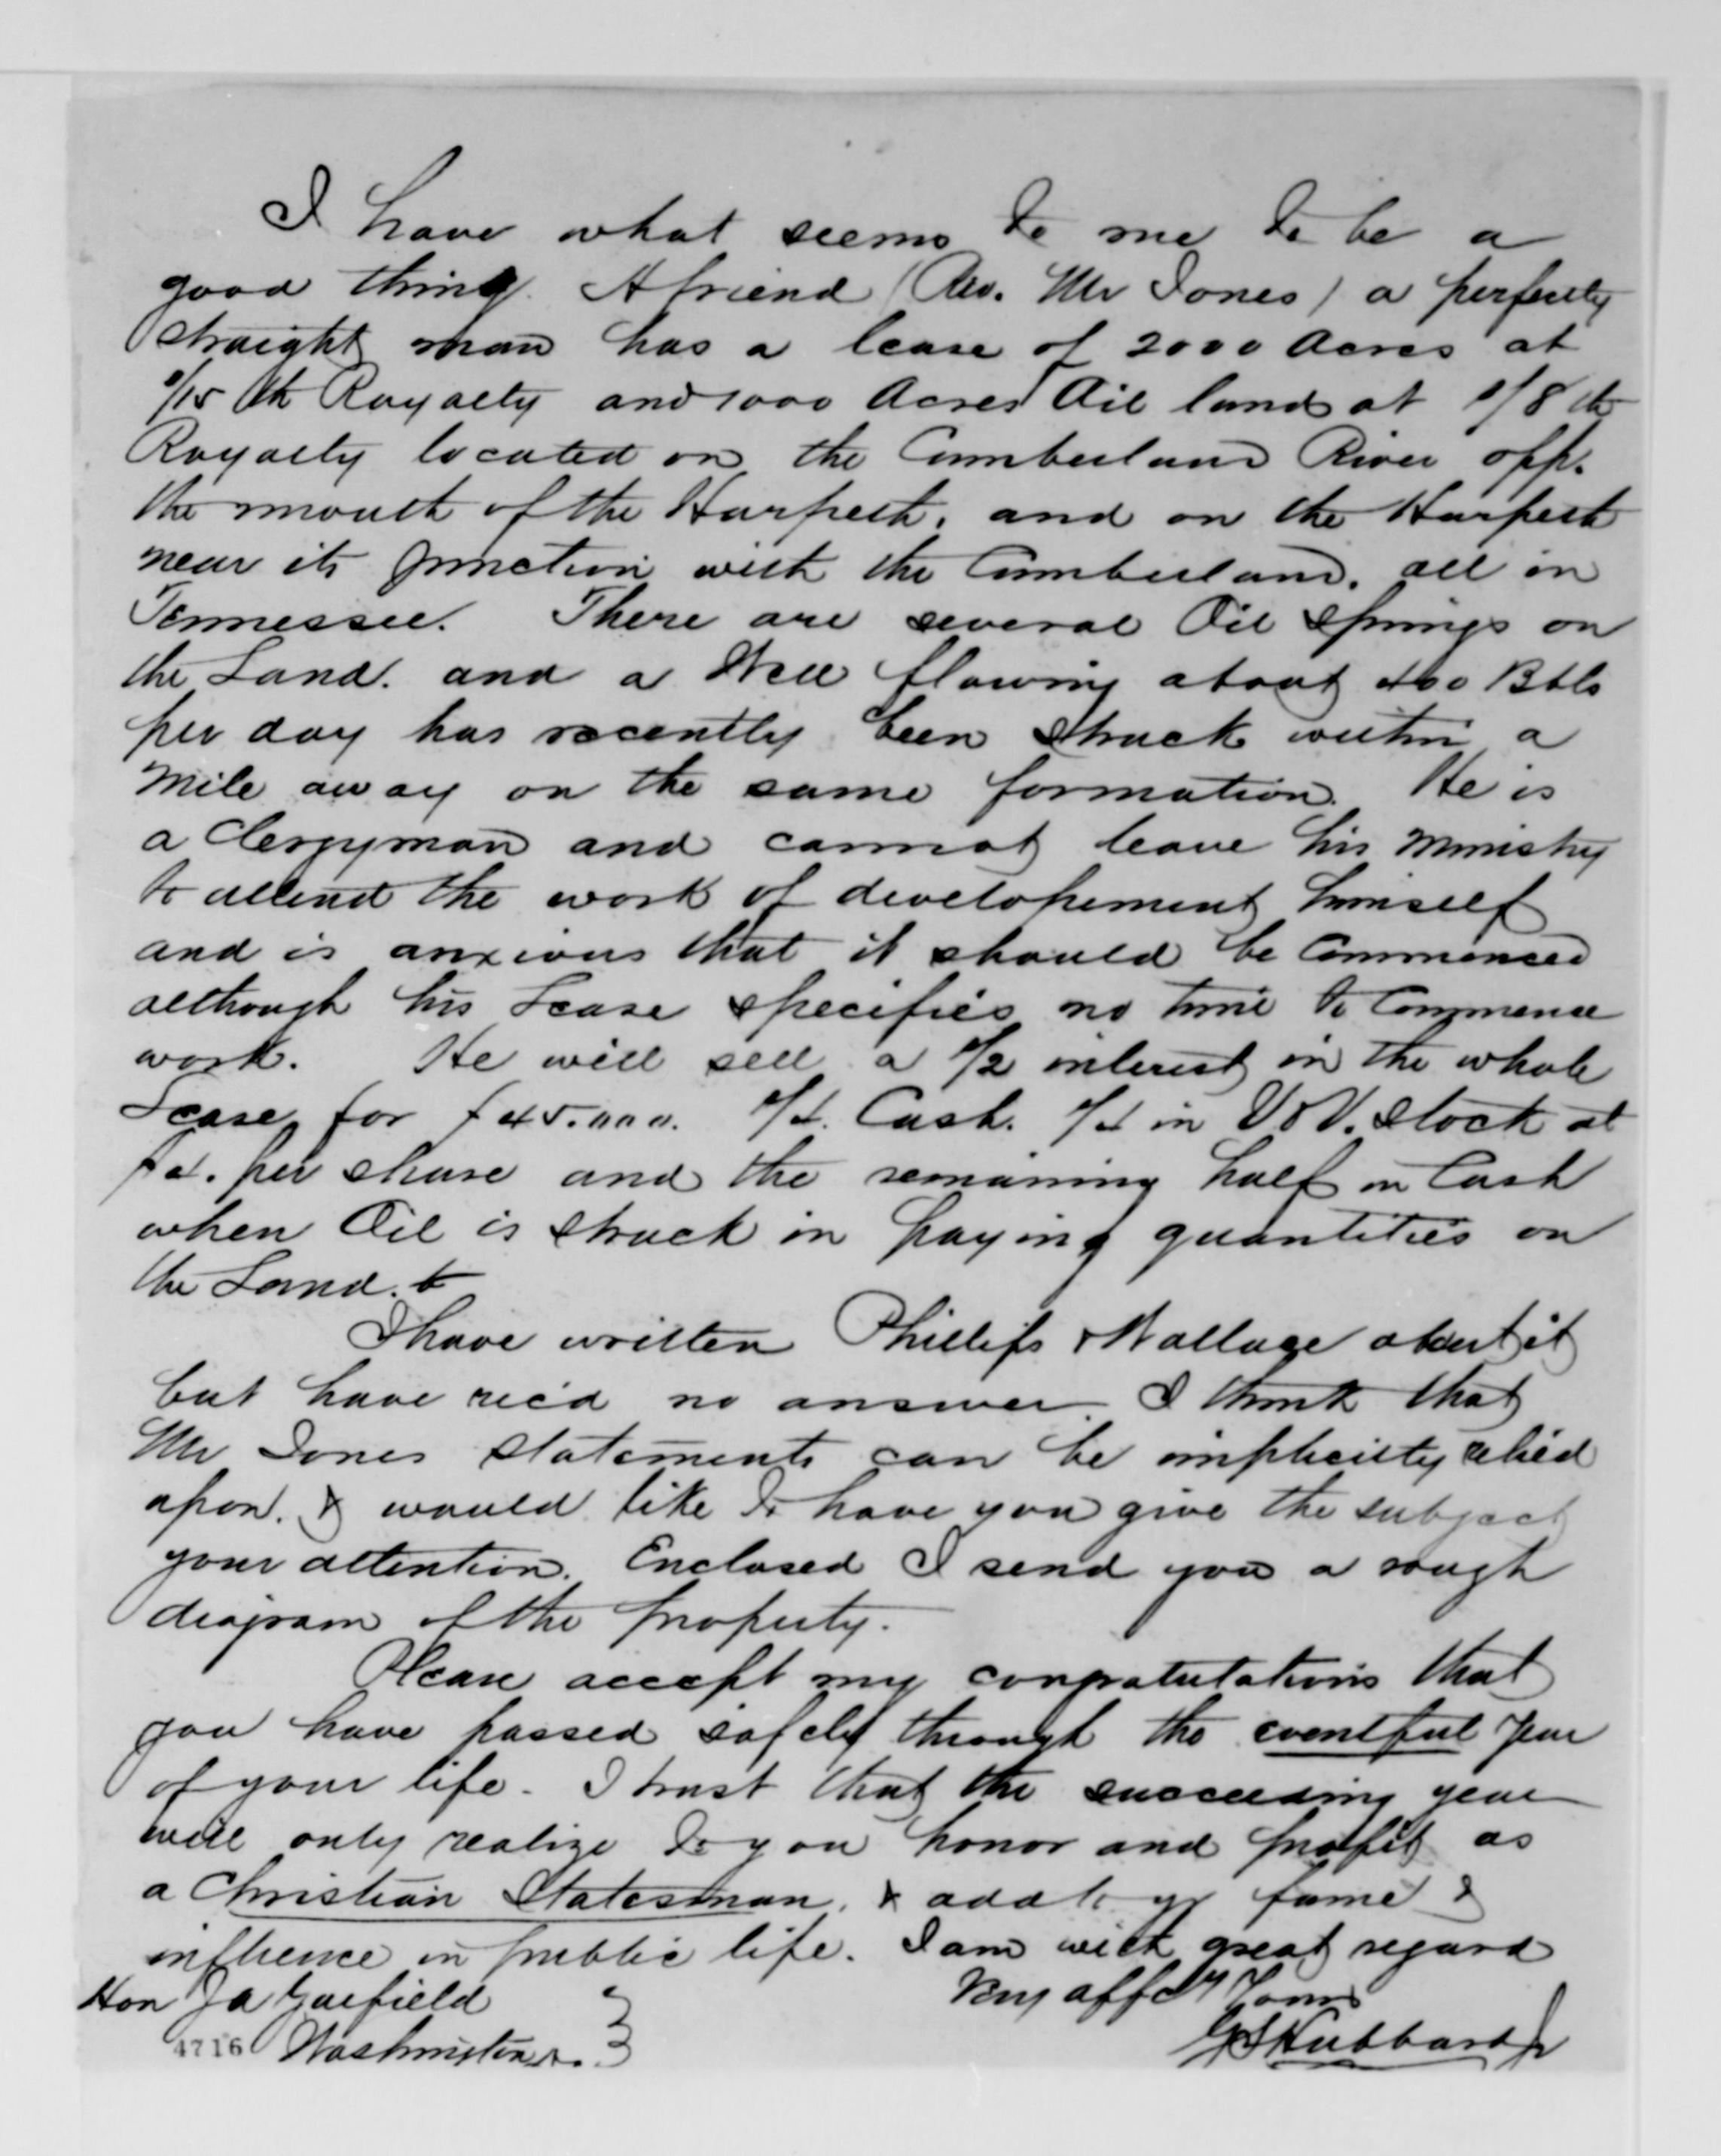 I have what seems to me to be a
good thing. A friend (Rev. Mr Jones) a perfectly
straight man has a lease of 2000 Acres at
1/15 th Royalty and 1000 Acres Oil land at 1/8 th
Royalty located on the Cumberland River opp.
the mouth of the Harpeth, and on the Harpeth
near its junction with the Cumberland, all in
Tennessee. There are several Oil Springs on
the Land. and a Well flowing about 400 Bbls
per day has recently been struck within a
mile away on the same formation. He is
a Clergyman and cannot leave his ministry
to attend the work of developement himself
and is anxious that it should be Commenced
although his Lease specifies no time to Commence
work. He will sell a 1/2 interest in the whole
Lease for $45.000. 1/4. Cash. 1/4 in stock at
$4. per share and the remaining half in Cash
when Oil is struck in paying quantities on
the Land.
I have written Phillips & Wallace about it
but have rec'd no answer. I think that
Mr Jones statements can be implicitly relied
upon. & would like to have you give the subject
your attention. Enclosed I send you a rough
diagram of the property.
Please accept my congratulations that
you have passed safely through the eventful year
of your life. I trust that the succeeding year
will only realize to you honor and profit as
a Christian Statesman, & add to yr fame &
influence in public life. I am with great regard
Very affcly Yours
Hon J A Garfield
G S Hubbard Jr
4716 Washington